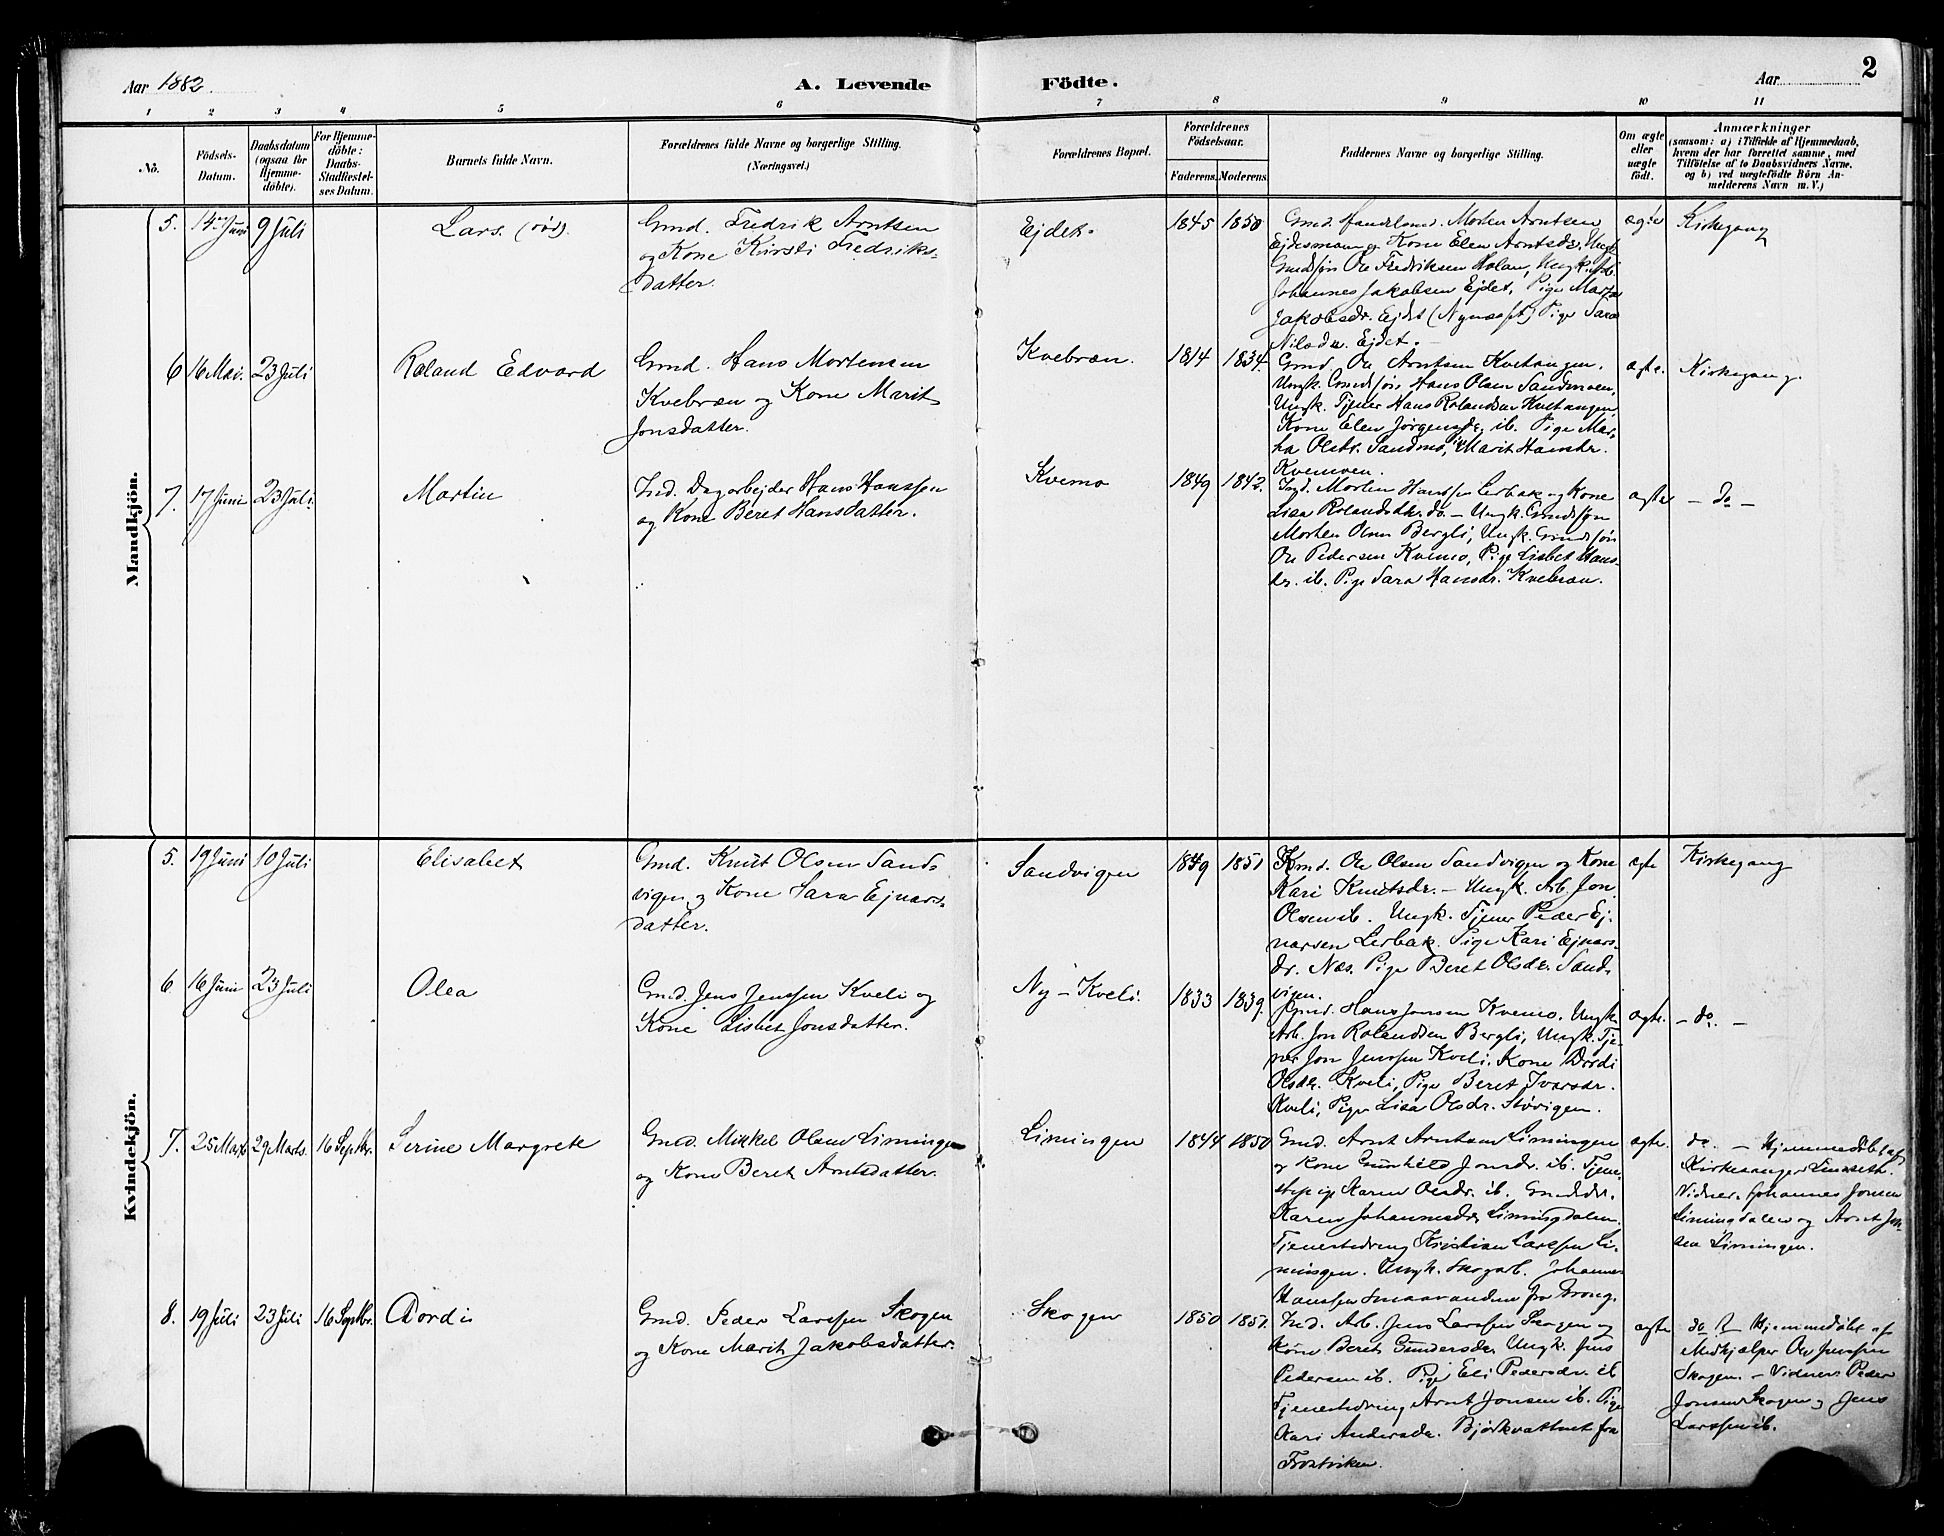 Aar 1882.
A. Levende Födte.
Aar
2
1 2 3 4 5 6 7 8 9 10 11
No.
Födsels-Datum.
Daabsdatum (ogsaa for Hjemme-döbte).
For Hjemme-döbte: Daabs-Stadfæstel-ses Datum.
Barnets fulde Navn.
Forældrenes fulde Navne og borgerlige Stilling.
(Næringsvei.)
Forældrenes Bopæl.
Forældrenes Födselsaar.
Faderens. Moderens.
Faddernes Navne og borgerlige Stilling.
Om ægte eller uægte födt.
Anmærkninger
(saasom: a) i Tilfælde af Hjemmedaab,
hvem der har forrettet samme, med
Tilföielse af to Daabsvidners Navne,
og b) ved uægtefödte Börn An-
melderens Navn m. V.)
Mandkjön.
5. 14 Juni 9 Juli
Lars.
Gmd. Fredrik Arntsen
og Kone Kirsti Fredriks-
datter.
Ejdet.
1845 1850
Gmd. Morten Arntsen
Kone Elen Arntsdr. Ungk.
Gmdssøn Ole Fredriksen Holan, Ungk.
Johannes Jakobsen Ejdet, Pige Marta
Jakobsdr. Ejdet Pige Sara
Nilsdr. Ejdet.
ægte
Kirkegang
6 16 Mai. 23 Juli
Roland Edvard
Gmd. Hans Mortensen
Kvebræn og Kone Marit
Jonsdatter.
Kvebræn.
1814 1834.
Gmd. Ole Arntsen
Ungk. Gmdssøn Hans Olsen Sandmoen,
Ungk. Tjener Hans Rolandsen
Kone Elen Jörgensdr. ib. Pige Mar-
ha Olsdr. Sandmo, Marit Hansdr.
Kvemoen.
ægte.
Kirkegang.
7. 17 Juni 23 Juli.
Martin
Ind. Dagarbejder Hans Hanssen
og Kone Beret Hansdatter.
Kvemo
1849 1842.
Ind. Morten Hanssen Lerbak og Kone
Lisa Rolandsdtr. do. - Ungk. Gmdssøn
Morten Olsen Bergli, Ungk. Gmdssøn
Ole Pedersen Kvemo, Pige Lisbet Hans-
dr. ib. Pige Sara Hansdr. Kvebræn.
ægte
- do -
Kvindekjön.
5. 19 Juni 10 Juli
Elisabet
Gmd. Knut Olsen Sand-
vigen og Kone Sara Ejnars-
datter.
Sandvigen
1849 1851
Gmd. Ole Olsen Sandvigen og Kone
Kari Knutsdr. - Ungk. Arb. Jon
Olsen ib. Ungk. Tjener Peder Ej-
narsen Lerbak. Pige Kari Ejnars-
dr. Næs. Pige Beret Olsdr. Sand-
vigen.
ægte
Kirkegang
6 16 Juni 23 Juli
Olea
Gmd. Jens Jenssen Kveli og
Kone Lisbet Jonsdatter.
Ny-Kveli.
1833 1839.
Gmd. Hans Jonsen Kvemo. Ungk.
Arb. Jon Rolandsen Bergli, Ungk. Tje-
ner Jon Jenssen Kveli. Kone Dordi
Olsdr. Kveli, Pige Beret Ivarsdr.
Kveli, Pige Lisa Olsdr. Støvigen.
ægte.
- do. -
7. 25 Marts 29 Marts. 16 Septbr.
Serine Margrete
Gmd. Mikkel Olsen Limingen
og Kone Beret Arntsdatter.
Limingen
1844 1850
Gmd. Arnt Arntsen Limingen
og Kone Gunhild Jonsdr. ib. Tjene-
stepige Karen Olsdr. ib. Gmdsdr.
Karen Johannesdr. Limingdalen.
Tjenestedreng Kristian Larssen Li-
mingen. Ungk. Skogarb. Johannes
Hanssen Smaavanden fra Grong.
ægte.
do. - Hjemmedøbt af
Kirkesanger
Vidner. Johannes Jonsen
Limingdalen og Arnt
Limingen.
8. 19 Juli 23 Juli 16 Septbr.
Dordi
Gmd. Peder Larssen Skogen
og Kone Marit Jakobsdatter.
Skogen
1850 1851.
Ind. Arb. Jens Larssen Skogen og
Kone Beret Gundersdr. Ungk. Jens
Pedersen ib. Pige Eli Pedersdr. ib
Tjenestedreng Arnt Jonsen ib. Pige
Kari Andersdr. Bjørkvattnet fra
Frostviken.
ægte
do Hjemmedøbt af
Medhjælper Ole Jenssen
Skogen. - Vidner Peder
Jonsen Skogen og Jens
Larssen ib.